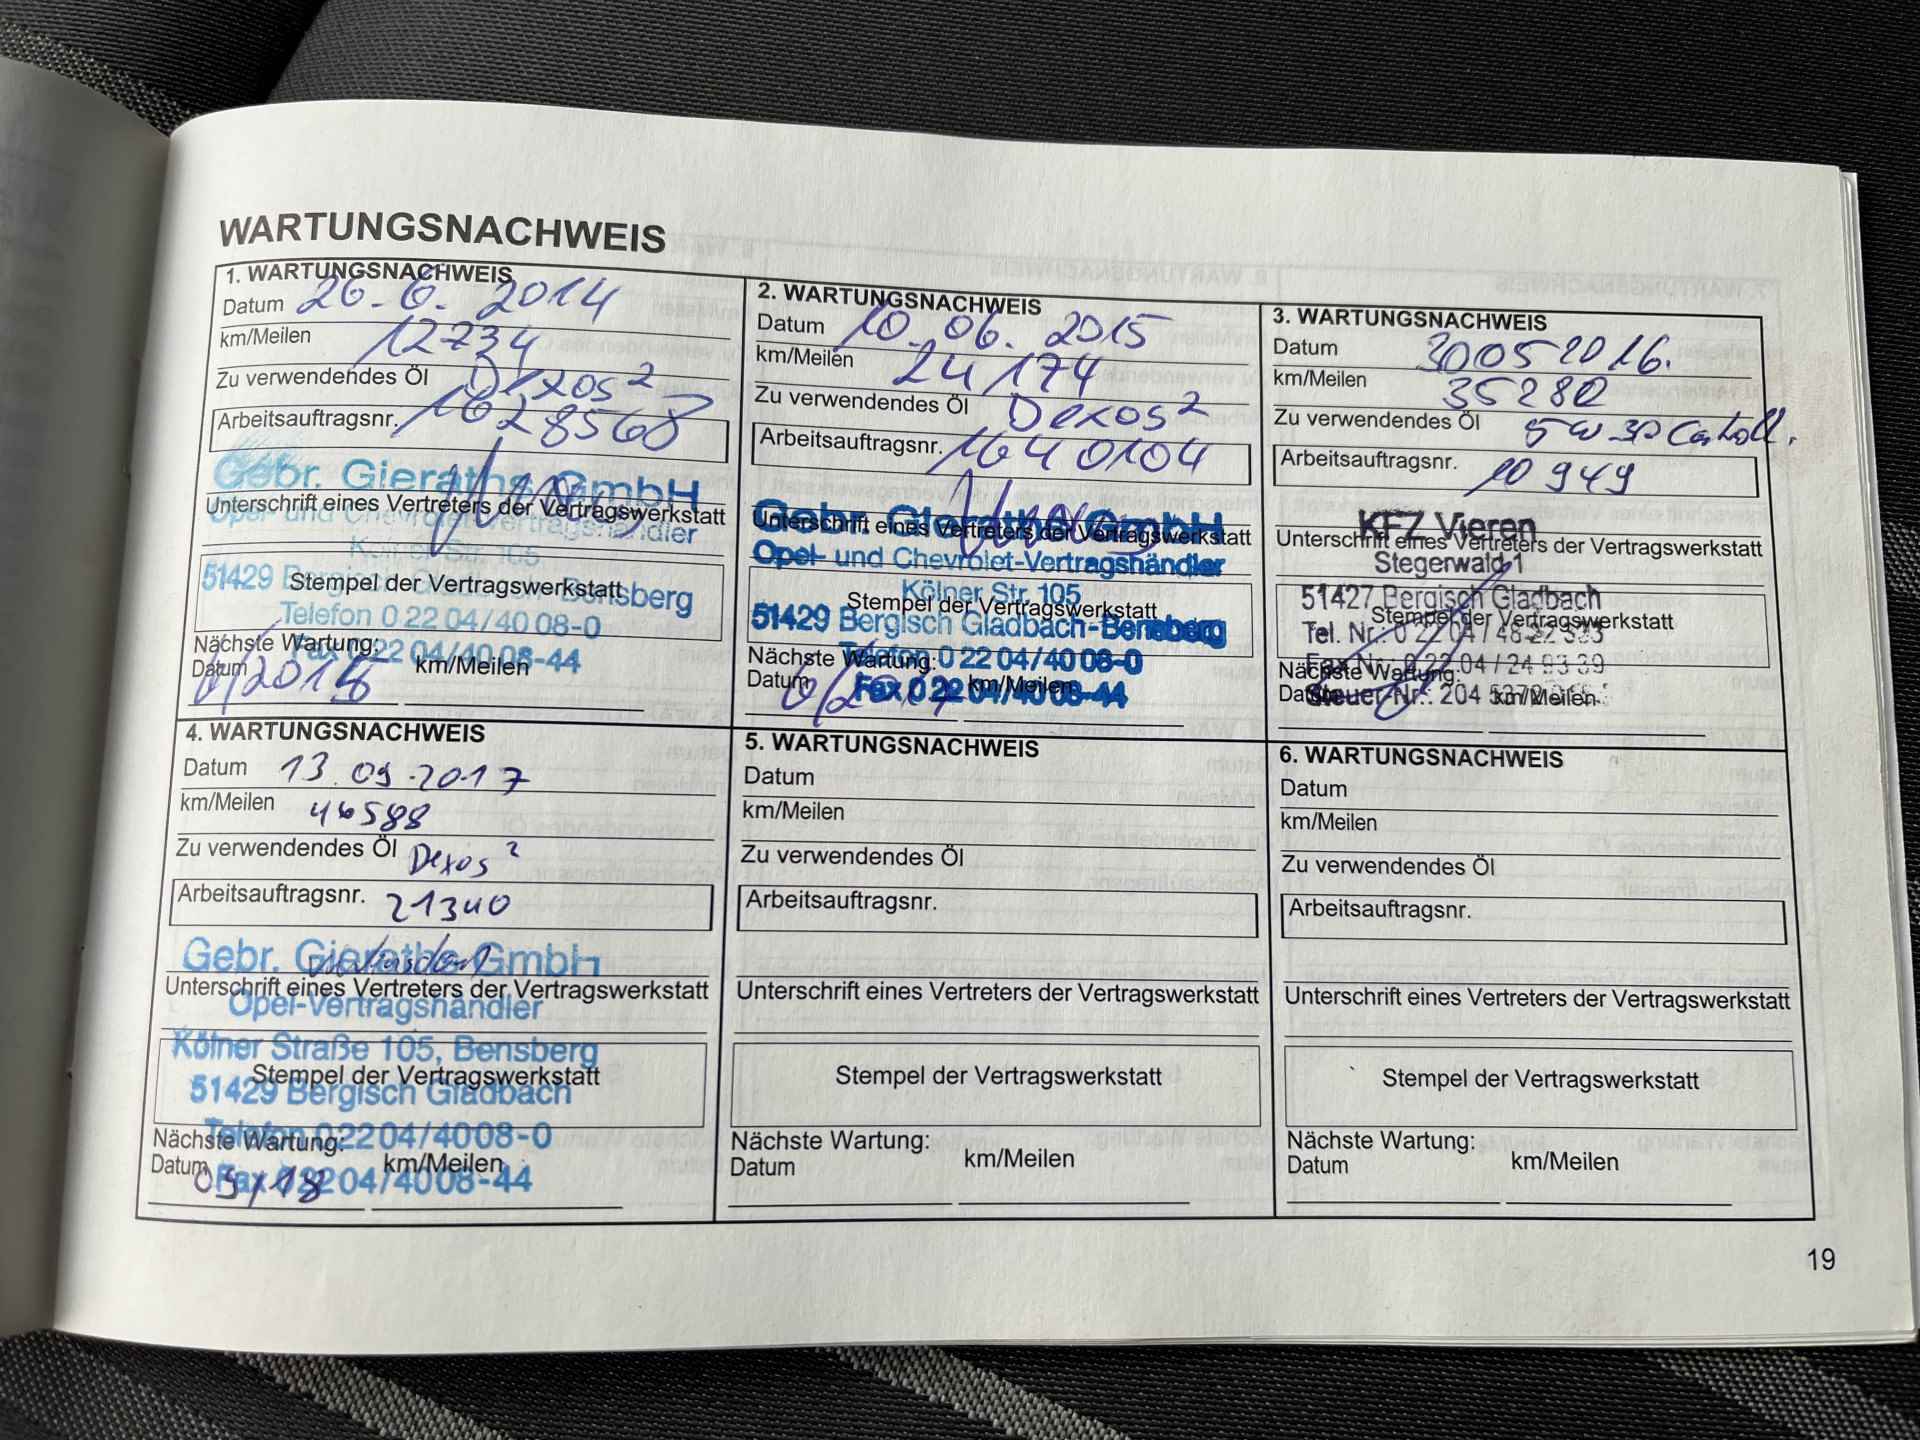 WARTUNGSNACHWEIS
1. WARTUNGSNACHWEIS
Datum 26.6.2014
km/Meilen 12734
Zu verwendendes Öl Dexos 2
Arbeitsauftragsnr. 1628568
Gebr. Gieraths GmbH
Unterschrift eines Vertreters der Vertragswerkstatt
Opel- und Chevrolet-Vertragshändler
Kölner Str. 105
51429 Bergisch Gladbach-Bensberg
Stempel der Vertragswerkstatt
Telefon 0 22 04/40 08-0
Nächste Wartung:
Fax 0 22 04/40 08-44
Datum 6/2015 km/Meilen
2. WARTUNGSNACHWEIS
Datum 10.06.2015
km/Meilen 24174
Zu verwendendes Öl Dexos 2
Arbeitsauftragsnr. 1640104
Gebr. Gieraths GmbH
Unterschrift eines Vertreters der Vertragswerkstatt
Opel- und Chevrolet-Vertragshändler
Kölner Str. 105
Stempel der Vertragswerkstatt
51429 Bergisch Gladbach-Bensberg
Nächste Wartung:
Telefon 0 22 04/40 08-0
Datum km/Meilen
Fax 0 22 04/40 08-44
3. WARTUNGSNACHWEIS
Datum 30 05 2016.
km/Meilen 35280
Zu verwendendes Öl 5W30
Arbeitsauftragsnr. 10949
KFZ Vieren
Unterschrift eines Vertreters der Vertragswerkstatt
Stegerwald 1
51427 Bergisch Gladbach
Stempel der Vertragswerkstatt
Tel. Nr.: 0 22 04 /
Fax Nr.: 0 22 04 / 24 93 39
Nächste Wartung:
Datum km/Meilen
Steuer-Nr.: 204
4. WARTUNGSNACHWEIS
Datum 13.09.2017
km/Meilen 46588
Zu verwendendes Öl Dexos 2
Arbeitsauftragsnr. 21340
Gebr. Gieraths GmbH
Unterschrift eines Vertreters der Vertragswerkstatt
Opel-Vertragshändler
Kölner Straße 105, Bensberg
Stempel der Vertragswerkstatt
51429 Bergisch Gladbach
Telefon 02204/4008-0
Nächste Wartung:
Datum 09/18 km/Meilen
Fax 02204/4008-44
5. WARTUNGSNACHWEIS
Datum
km/Meilen
Zu verwendendes Öl
Arbeitsauftragsnr.
Unterschrift eines Vertreters der Vertragswerkstatt
Stempel der Vertragswerkstatt
Nächste Wartung:
Datum km/Meilen
6. WARTUNGSNACHWEIS
Datum
km/Meilen
Zu verwendendes Öl
Arbeitsauftragsnr.
Unterschrift eines Vertreters der Vertragswerkstatt
Stempel der Vertragswerkstatt
Nächste Wartung:
Datum km/Meilen
19